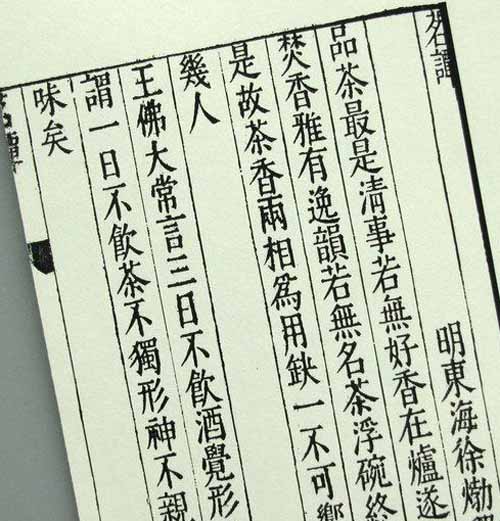 茗譚
明東海徐𤊹
品茶最是清事若無好香在爐遂
焚香雅有逸韻若無名茶浮碗終
是故茶香兩相為用缺一不可
幾人
王佛大常言三日不飲酒覺形
謂一日不飲茶不獨形神不親
味矣